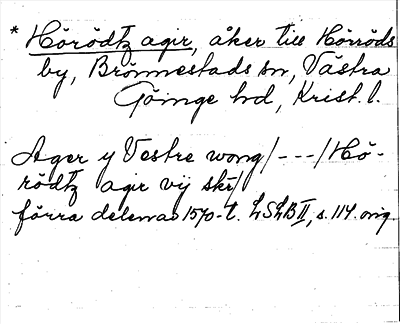 * Hörödtz agir, åker till Hörröds
by, Brönnestads sn, Västra
Göinge hd, Krist. l.
Ager y Vestre wong/---/Hö-
rödtz agir vij skr/
förra delen av 1570-t. LSLB II, s. 114. orig.